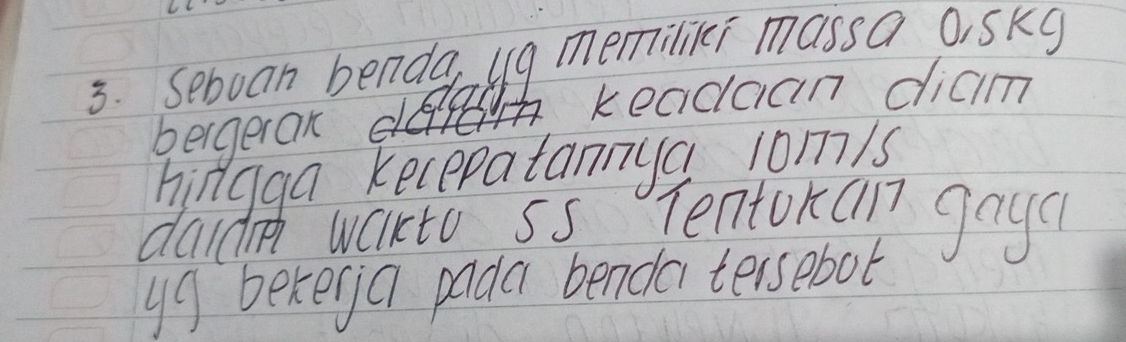 3. Sebuah benda yg memiliki massa 0,5kg
bergerak dalam keadaan diam
hingga kecepatannya 10m/s
dalam waktu 5s Tentukan gaya
yg bekerja pada benda tersebut